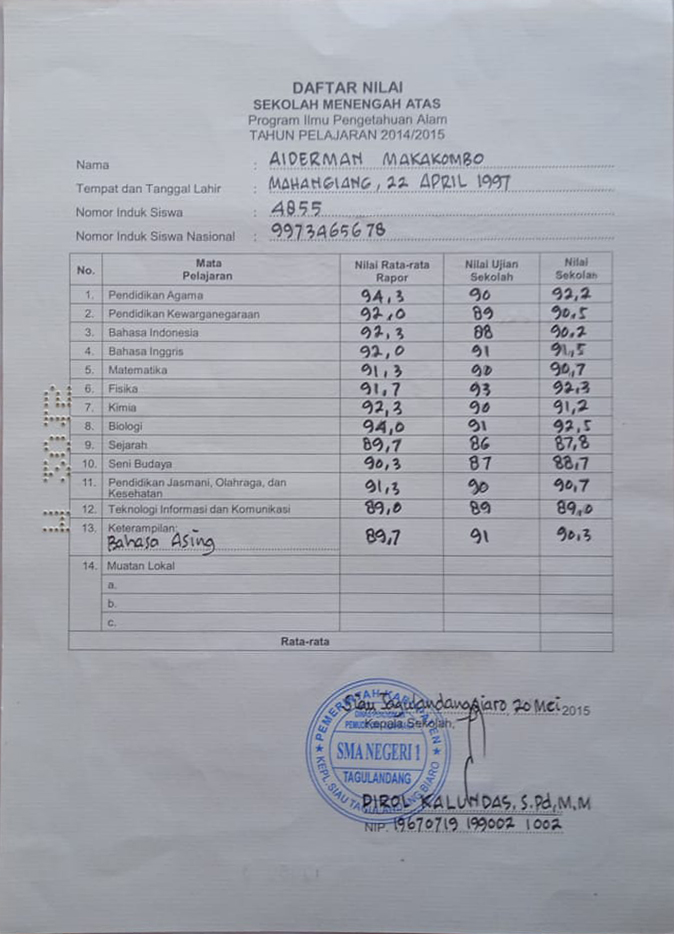 DAFTAR NILAI
SEKOLAH MENENGAH ATAS
Program Ilmu Pengetahuan Alam
TAHUN PELAJARAN 2014/2015
Nama : AIDERMAN MAKAKOMBO
Tempat dan Tanggal Lahir : MAHANGIANG, 22 APRIL 1997
Nomor Induk Siswa : 4855
Nomor Induk Siswa Nasional : 9973465678
No. Mata Pelajaran Nilai Rata-rata Rapor Nilai Ujian Sekolah Nilai Sekolah
1. Pendidikan Agama 94,3 90 92,2
2. Pendidikan Kewarganegaraan 92,0 89 90,5
3. Bahasa Indonesia 92,3 88 90,2
4. Bahasa Inggris 92,0 91 91,5
5. Matematika 91,3 90 90,7
6. Fisika 91,7 93 92,3
7. Kimia 92,3 90 91,2
8. Biologi 94,0 91 92,5
9. Sejarah 89,7 86 87,8
10. Seni Budaya 90,3 87 88,7
11. Pendidikan Jasmani, Olahraga, dan Kesehatan 91,3 90 90,7
12. Teknologi Informasi dan Komunikasi 89,0 89 89,0
13. Keterampilan: Bahasa Asing 89,7 91 90,3
14. Muatan Lokal
a.
b.
c.
Rata-rata
Siau Tagulandang Biaro 20 Mei 2015
Kepala Sekolah,
PEMERINTAH KABUPATEN
SMA NEGERI 1
TAGULANDANG
KEPL. SIAU TAGULANDANG BIARO
DIROL KALUNDAS, S.Pd, M.M
NIP. 19670719 199002 1 002